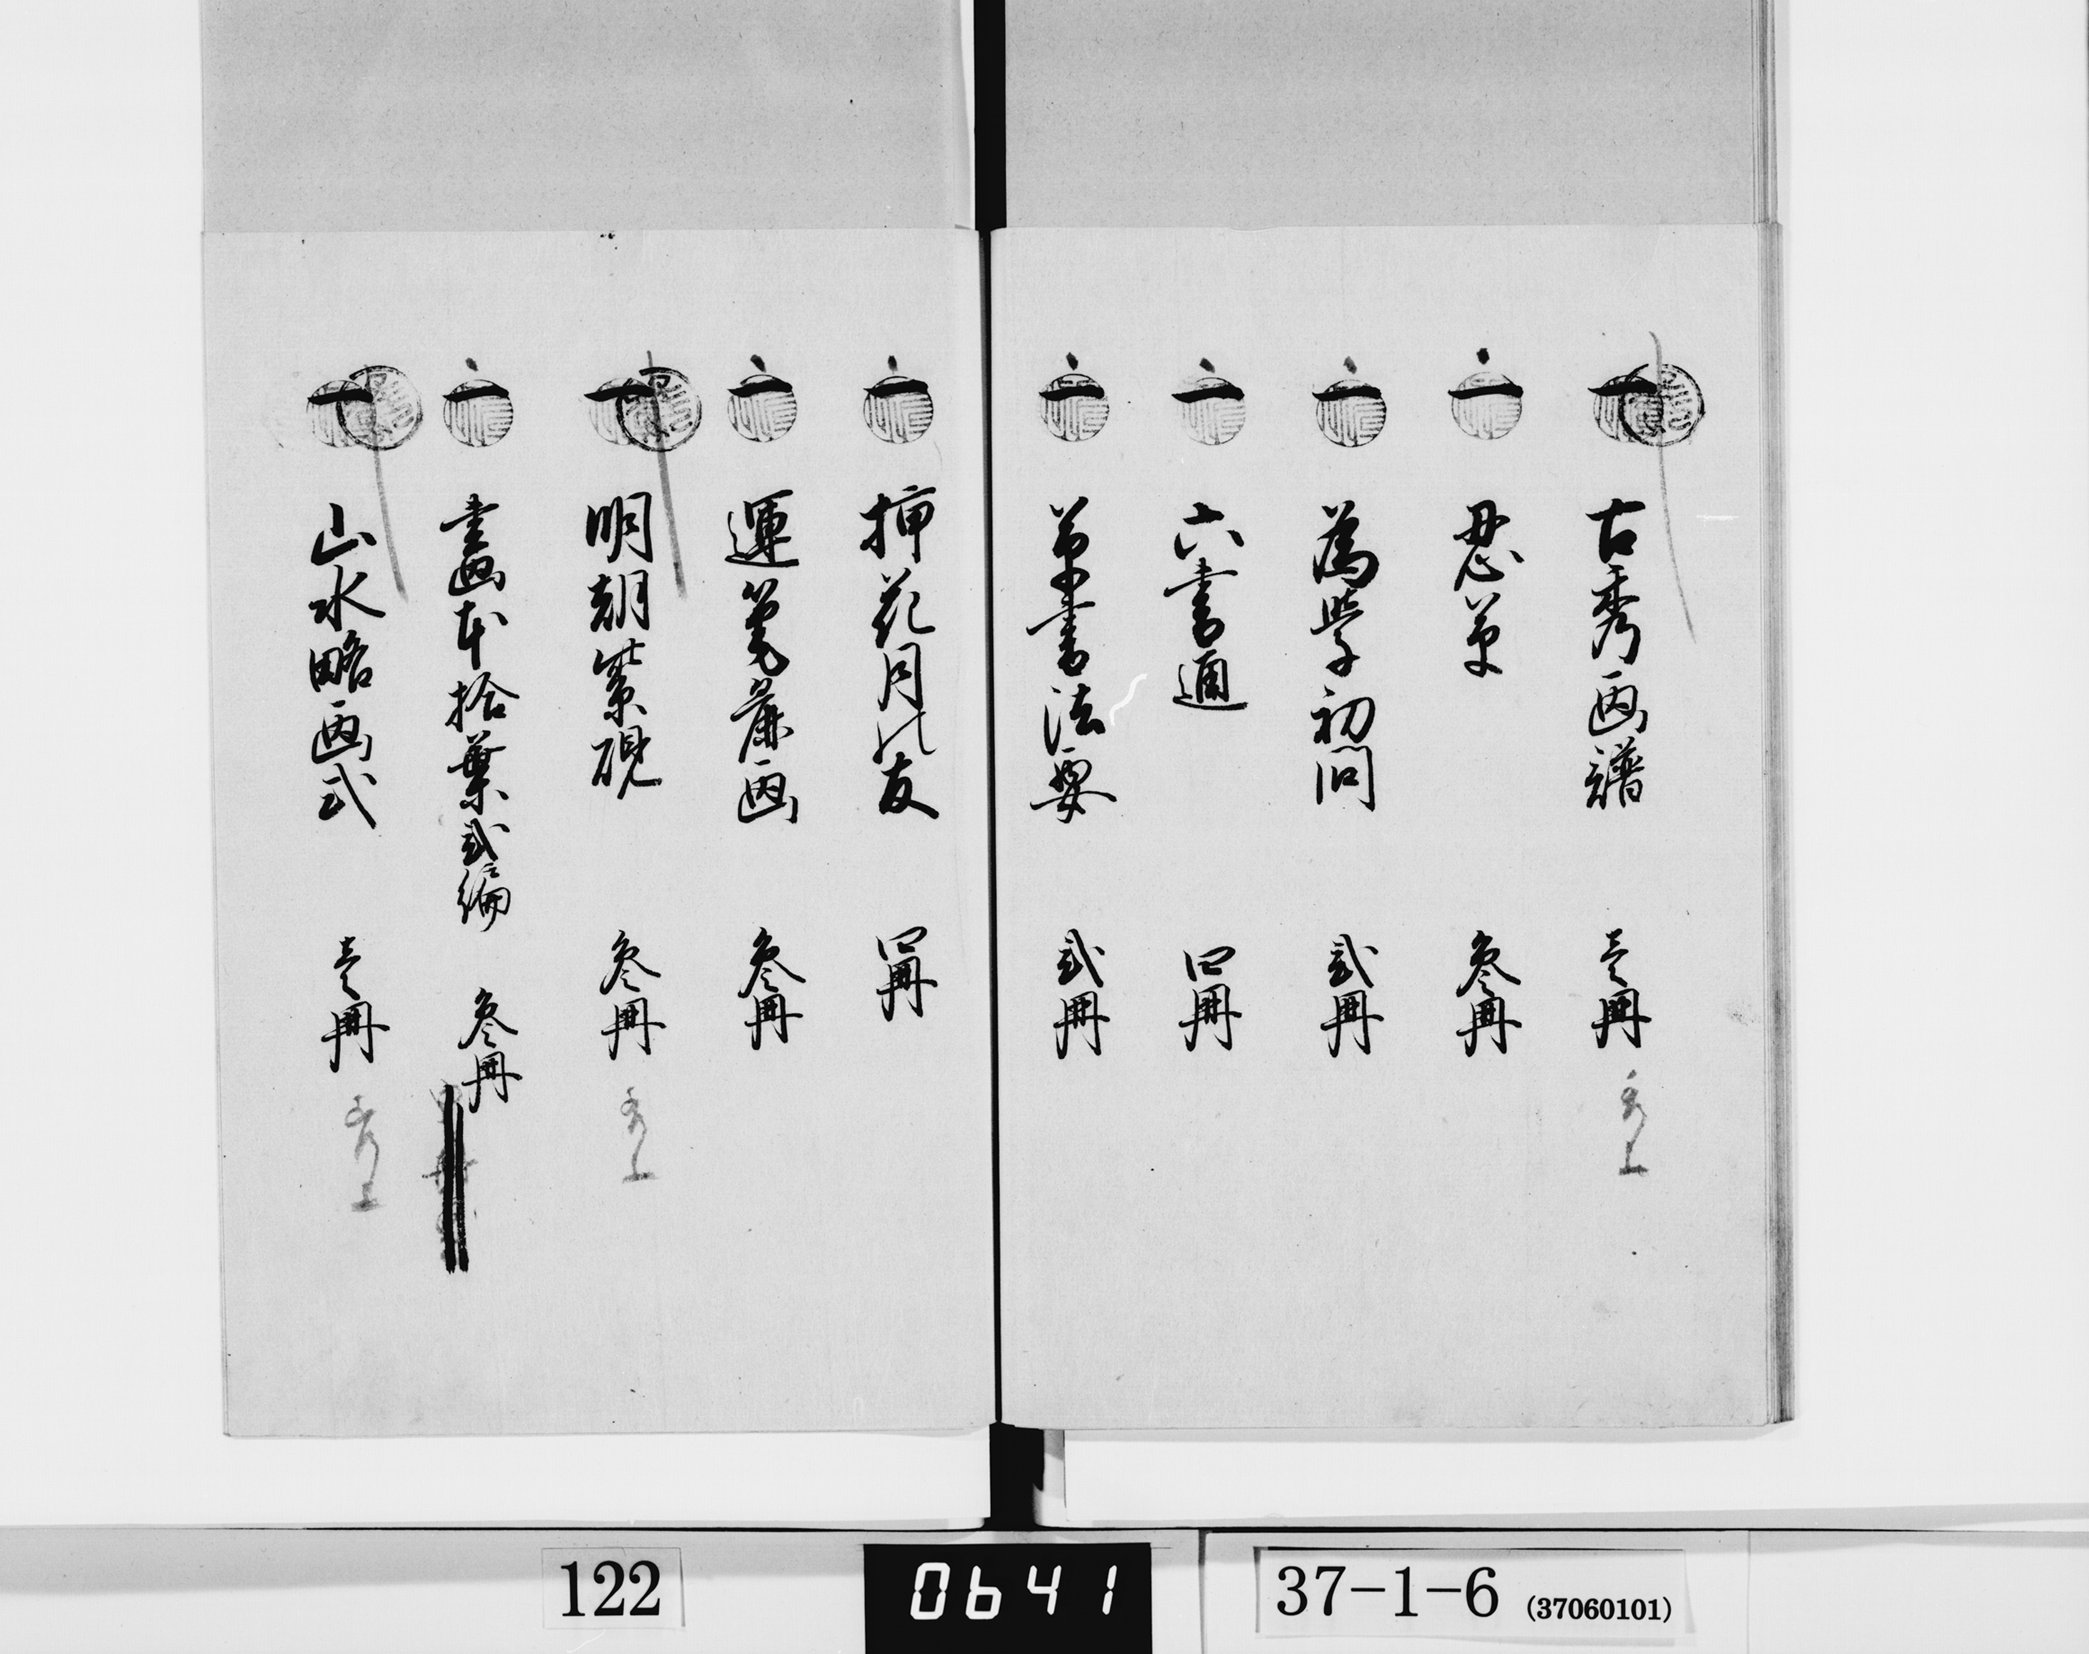 一 古秀画譜 壱冊 秀上
一 忍草 参冊
一 為学初問 弐冊
一 六書通 四冊
一 草書法要 弐冊
一 挿花月の友 四冊
一 運筆麁画 参冊
一 明朝紫硯 参冊 秀上
一 畫本拾葉弐編 参冊
一 山水略画式 壱冊 秀上
122
0641
37-1-6 (37060101)